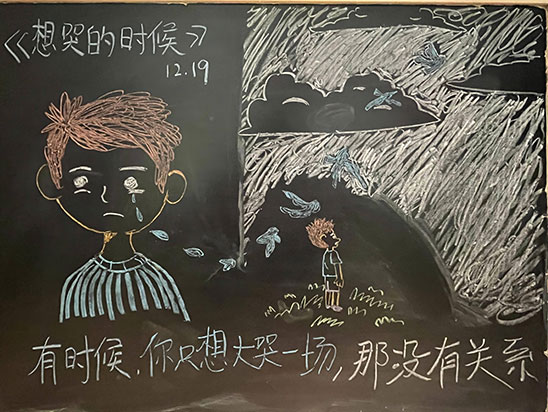 《想哭的时候》
12.19
有时候,你只想大哭一场,那没有关系